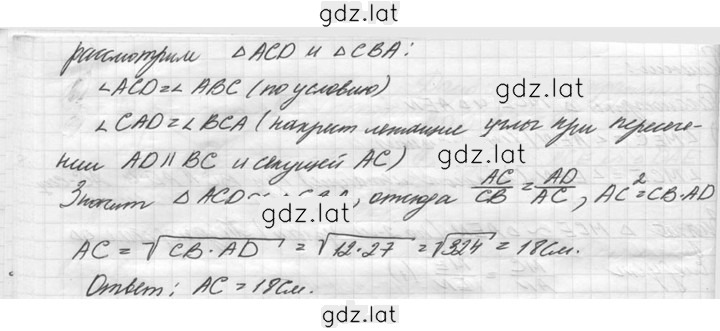 gdz.lat
рассмотрим △ACD и △CBA:
∠ACD=∠ABC (по условию)
gdz.lat
∠CAD=∠BCA (накрест лежащие углы при пересече-
нии AD∥BC и секущей AC)
Значит △ACD, отсюда AC/CB=AD/AC, AC²=CB·AD
gdz.lat
AC=√CB·AD=√12·27=√324=18см.
Ответ: AC=18см.
gdz.lat